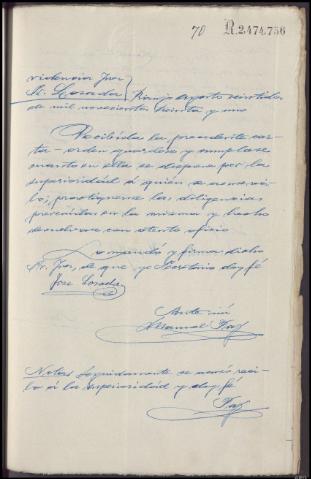 70 R.2.474.756
videncia Juez
Sr. Losada } Naranjo agosto veintidos
de mil novecientos treinta y uno
Recibida la precedente car-
ta-orden guardese y cumplase
cuanto en ella se dispone por la
superioridad á quién se acusa re-
bo, practiquense las diligencias
prevenidas en la misma y hecho
devuelvase con atento oficio
Lo mandó y firma dicho
Sr. Juez, de que yo Secretario doy fé
Jose Losada
Ante mi
Manuel Paz
Nota/ Seguidamente se acusó reci-
bo á la superioridad y doy fé
Paz